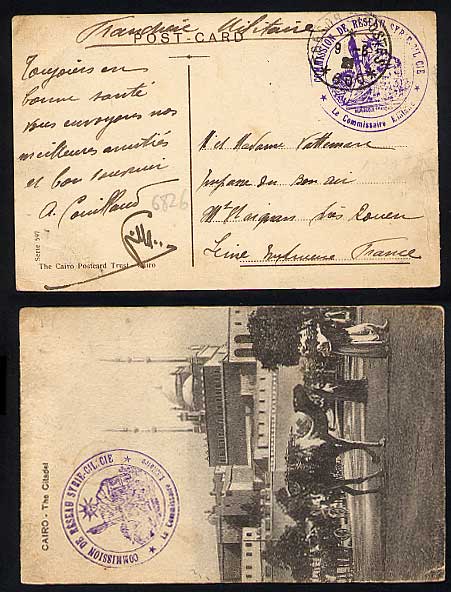 Franchise Militaire
POST-CARD
COMMISSION DE RESEAU SYRIE-CILICIE
Le Commissaire Militaire
Toujours en
bonne santé
vous envoyons nos
meilleures amitiés
et bon souvenir
A. Couillaud
6826
M et Madame Vatteman
Impasse du Bon air
Mt St Aignan lès Rouen
Seine Inférieure France
Serie 597
The Cairo Postcard Trust Cairo
CAIRO - The Citadel
COMMISSION DE RESEAU SYRIE-CILICIE
Le Commissaire Militaire